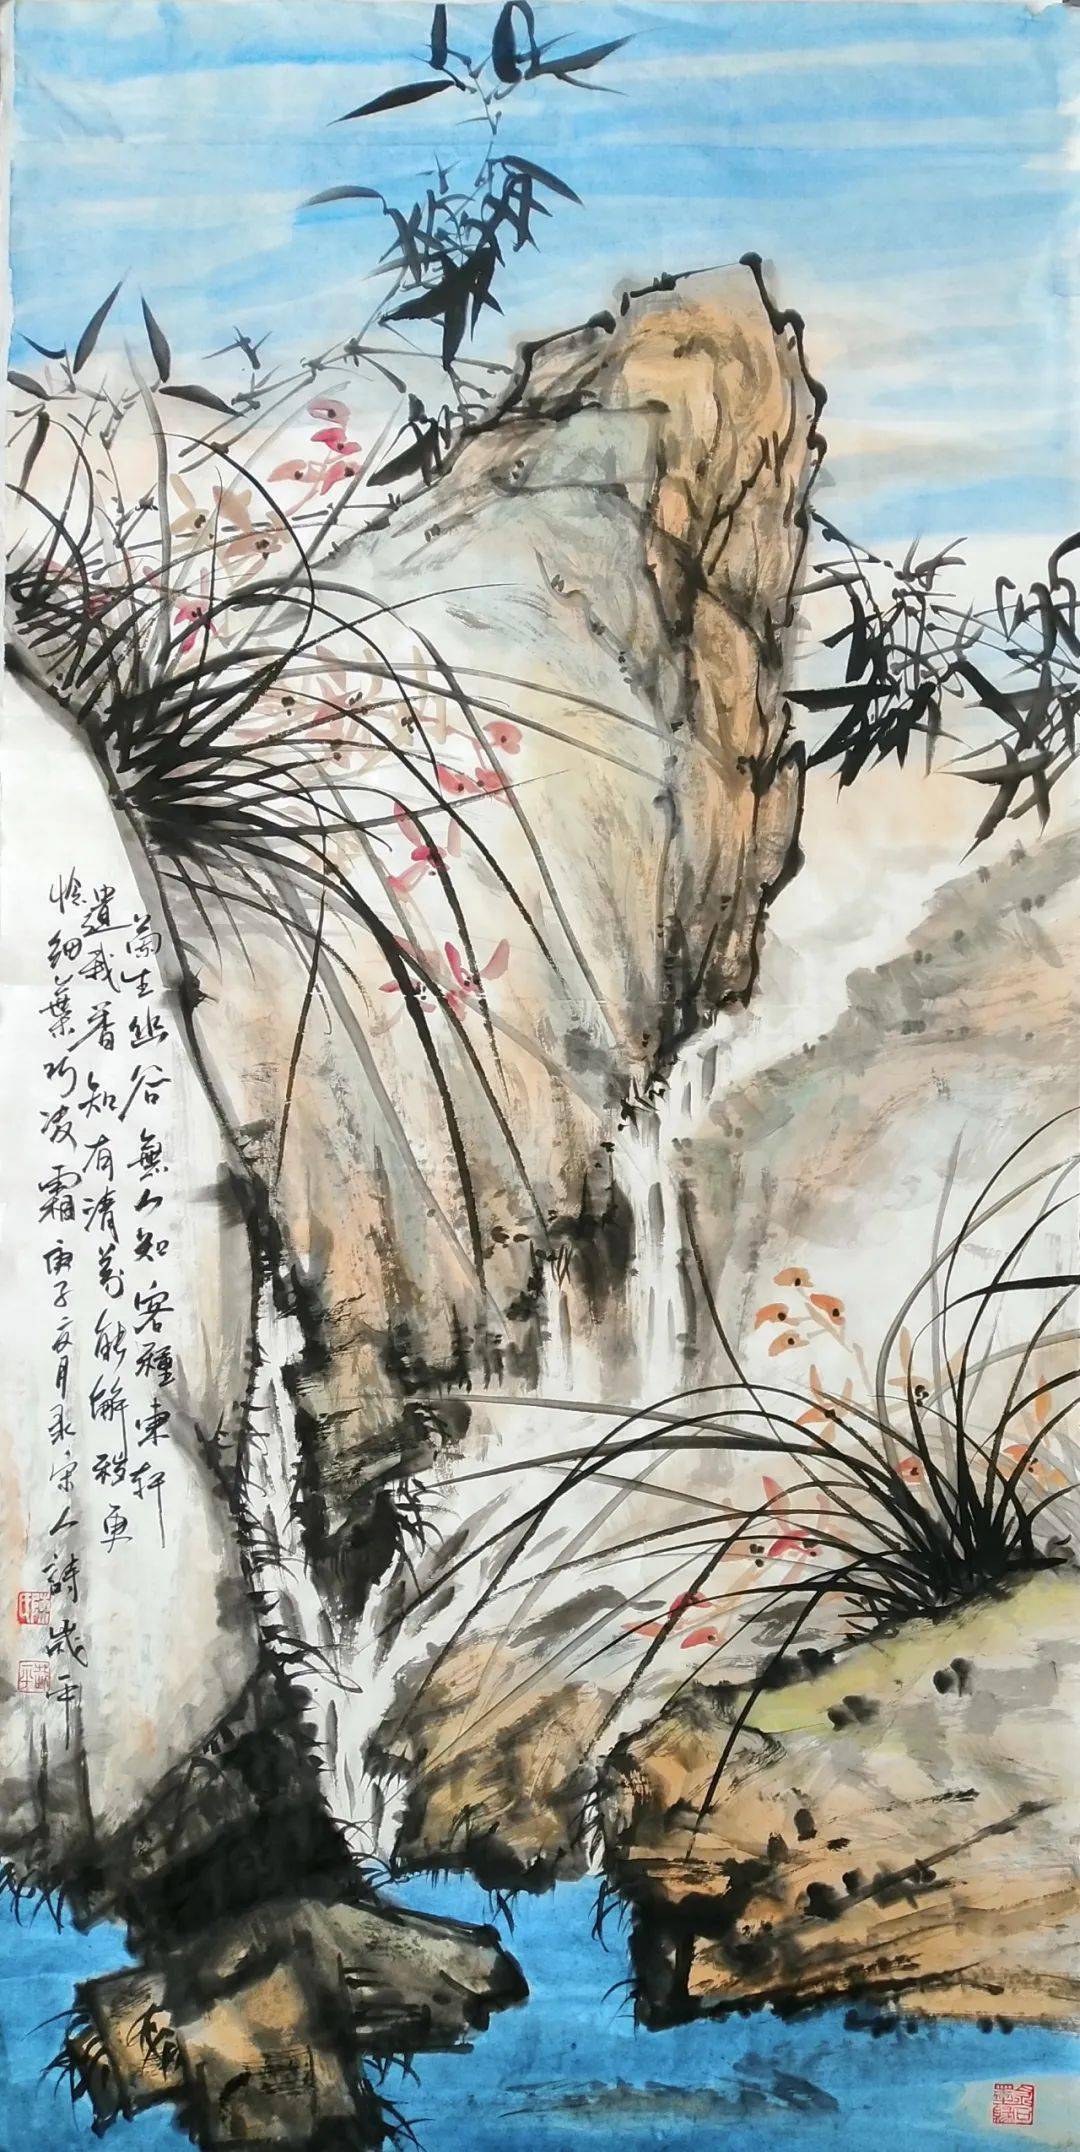 兰生幽谷無人知客種東軒
遺我香知有清芬能解穢更
憐細葉巧凌霜庚子亥月录宋人詩成平